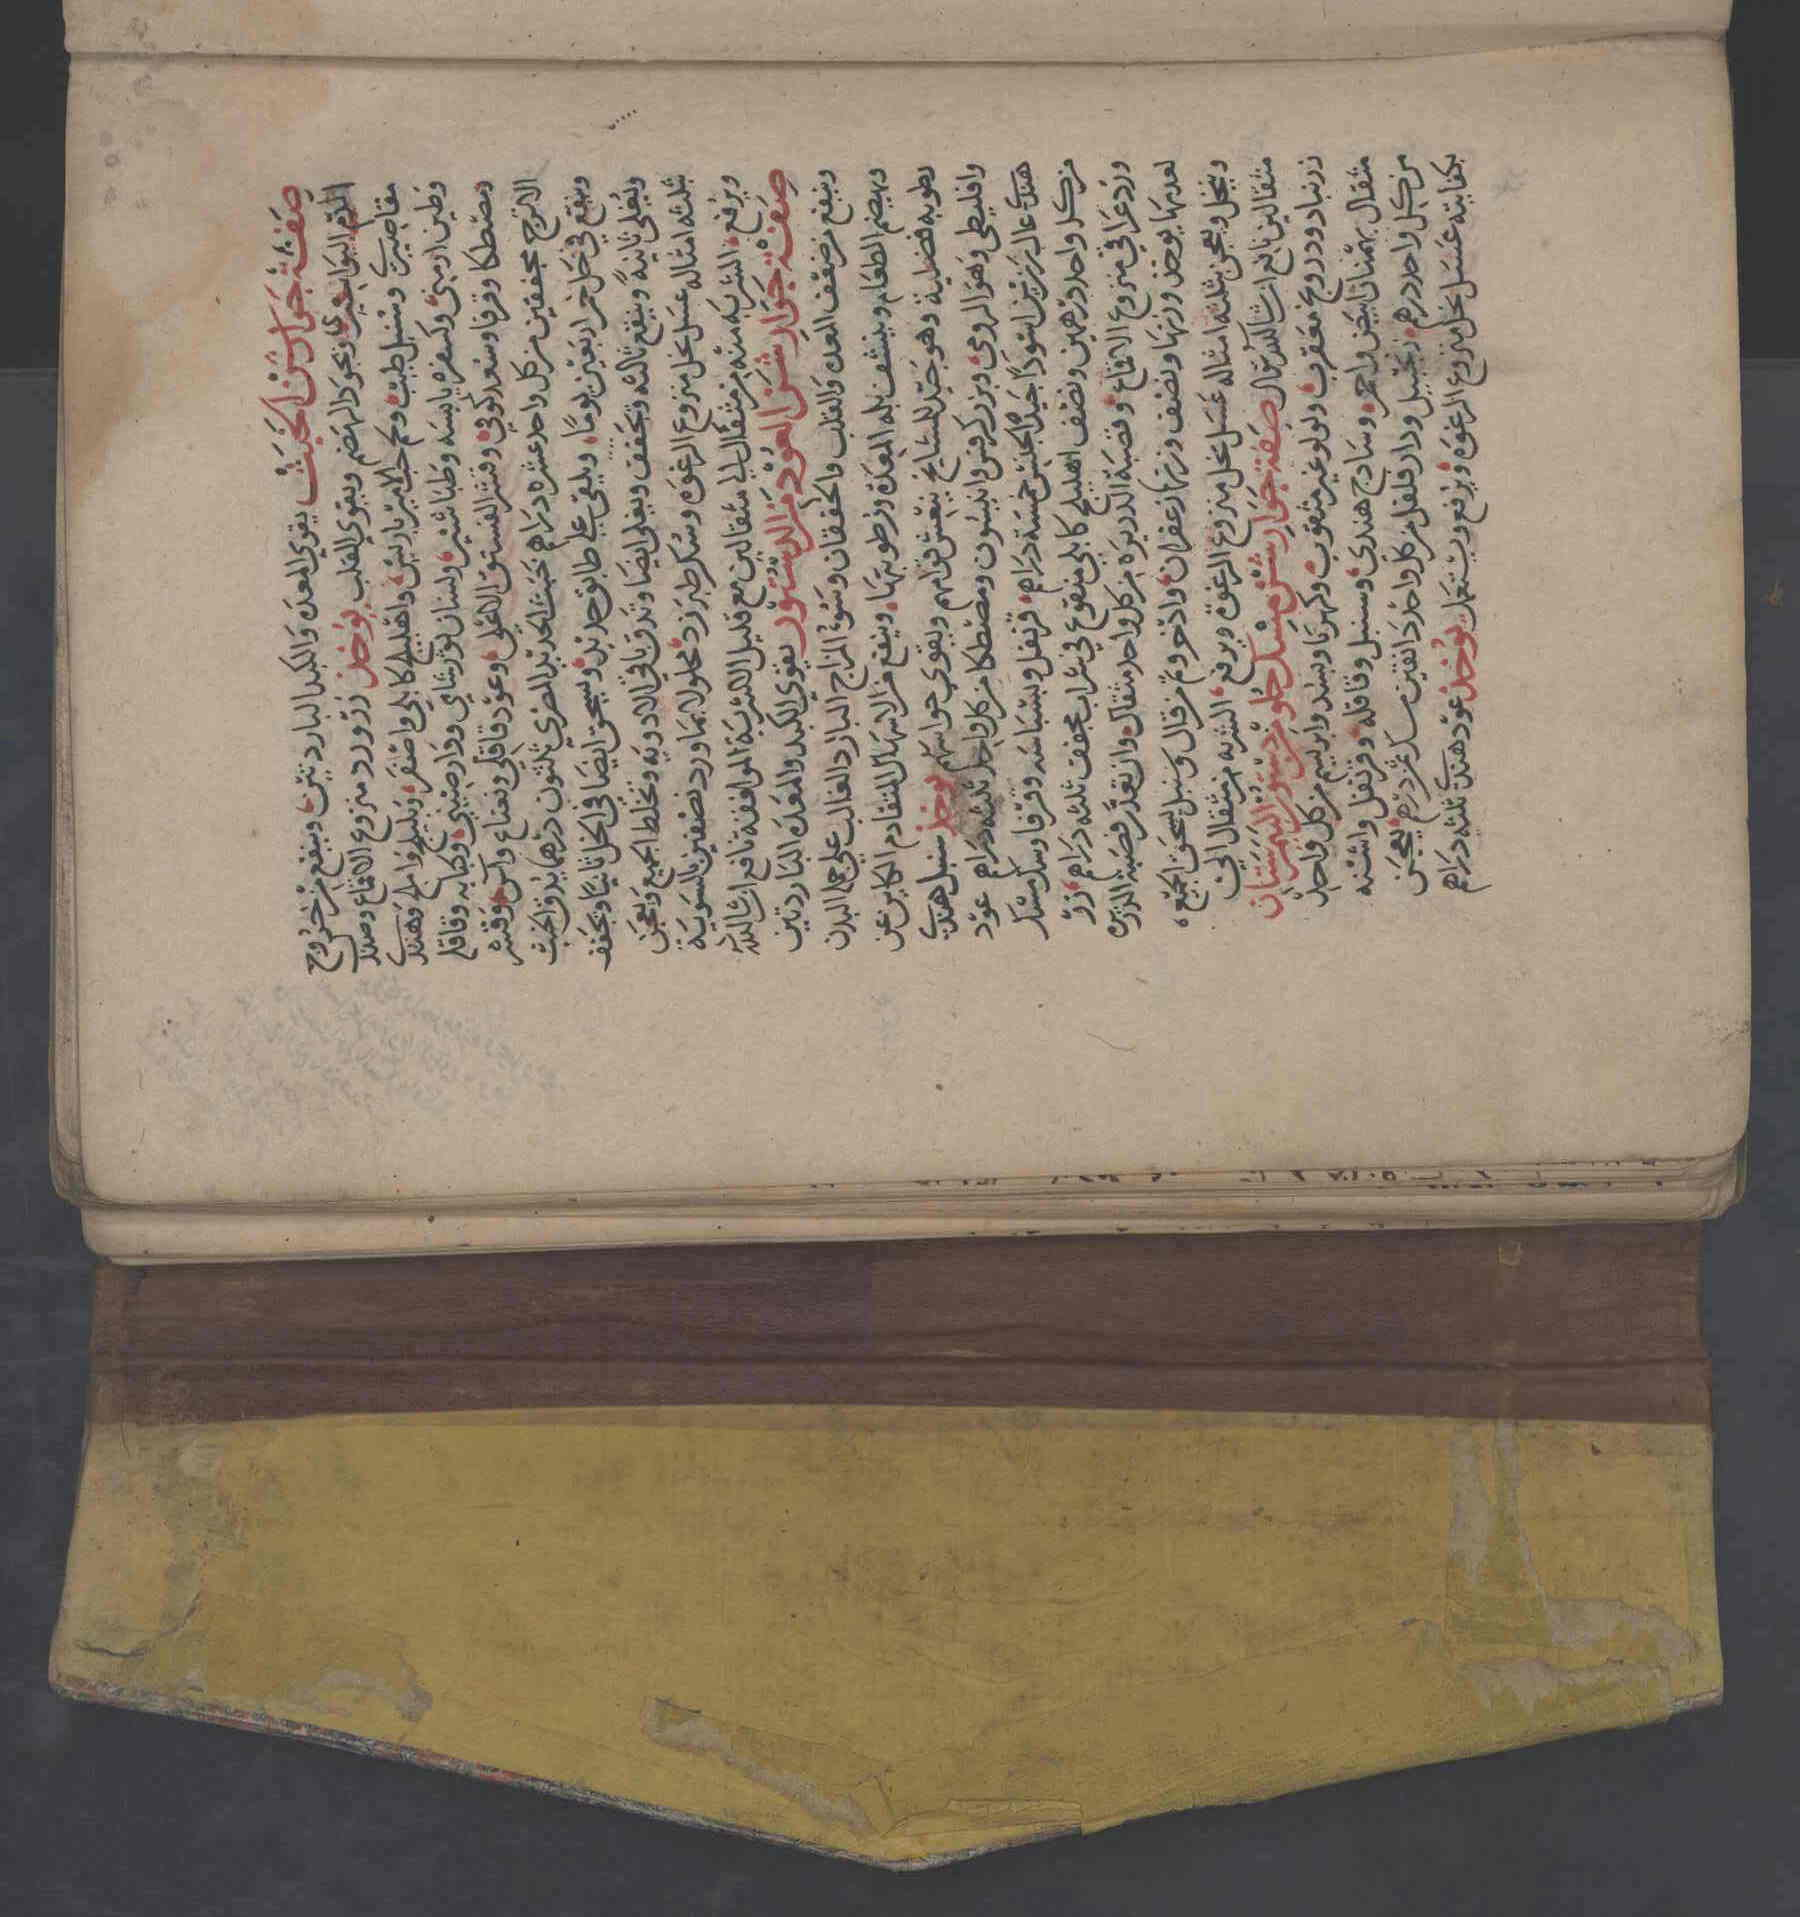 صفة جوارشن الخبث يقوي المعده والكبد الباردتين وينفع من خروج
الدم البواسيري ويجود الهضم ويقوي القلب يوخذ زر ورد منزوع الاقماع وصندل
مقاصيري وسنبل طيب وحب الامبرباريس واهليلج كابلي واصفر وبليلج واملج وهندي
وطين ارمني وكسفره يابسه وطباشير ولسان ثور شامي ودارصيني وكبابه وقاقله
ومصطكا وقرفا وسعد كوفي وقشر الفستق الاعلي وعود قاقلي ونعناع واس وقشر
الاترج مجففين من كل واحد عشره دراهم خبث الحديد البصري ثلثون درهما يدق الخبث
وينقع في خل خمر اربعين يوما ويلقي علي طابق حديد ويسحق ايضا في الخل ثانيا ويجفف
ويقلي ثانية وينقع ثالثه ويجفف ويقلي ايضا وتدق باقي الادويه وتخلط الجميع ويعجن
بثلثه امثاله عسل نحل منزوع الرغوه وسكر طبرزد محلولا بماورد نصفين بالسوية
ويرفع الشربه منه من مثقال الي مثقالين مع قليل الاشربة الموافقة نافع ان شا الله
صفة جوارشن العود من الدستور يقوي الكبد والمعده الباردتين
وينفع من ضعف المعده والقلب والخفقان وسؤ المزاج البارد الغالب علي البدن
ويهضم الطعام وينشف بله المعدة ورطوبتها وينفع من الاسهال المتقادم الكاين عن
رطوبه فضلية وهو جيد للمشايخ ينعش قواهم ويقوي حواسهم يوخذ سنبل هندي
واقليطي وهو الرومي وبزر كرفس وانيسون ومصطكا من كل واحد ثلثه دراهم عود
هندي عال رزين اسود جيد الجنس خمسة دراهم قرنفل وبسباسه وقرفا وسك مسك
من كل واحد درهمين ونصف اهليلج كابلي منقوع في شراب مجفف ثلثه دراهم زر
ورد عراقي منزوع الاقماع وقصبة الذريره من كل واحد مثقال وان تعذر قصبة الذريره
لعدمها يوخذ وزنها ونصف وزنها زعفران واذخر وسنبل يسحق الجميع
وينخل ويعجن بثلثه امثاله عسل نحل منزوع الرغوة ويرفع الشربه من مثقال الي
مثقالين نافع ان شا الله صفة جوارشن مسك حلو من دستور البيمرستان
زرنباد ودرونج معقرب ولولو غير مثقوب وكهربا وبسد وابريسم من كل واحد
مثقال بهمنان ابيض واحمر وسادج هندي وسنبل وقاقله وقرنفل واشنه
من كل واحد درهم زنجبيل ودار فلفل من كل واحد دانقين سك ثمن درهم يعجن
بكفايته عسل نحل منزوع الرغوه ويرفع ويستعمل يوخذ عود هندي ثلثه دراهم